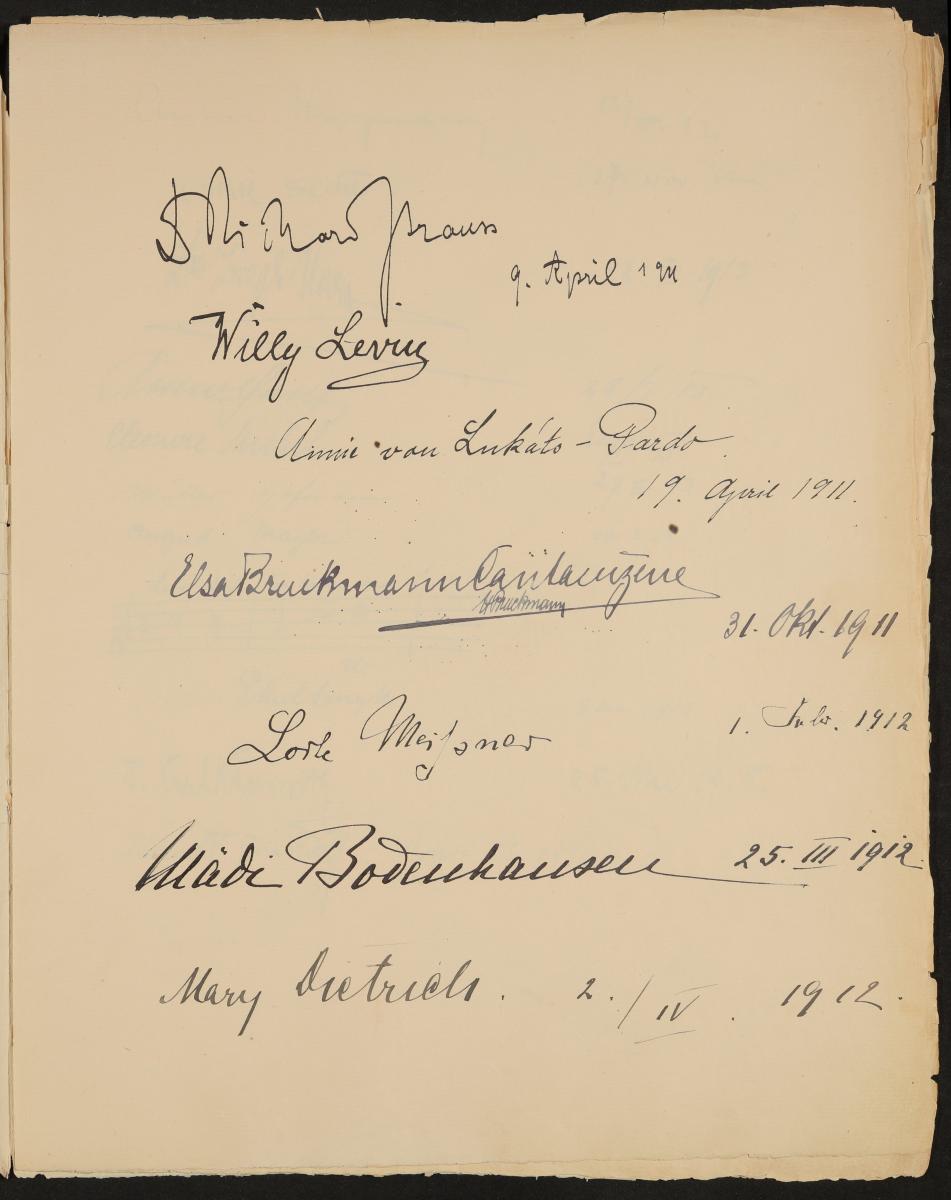 DRichard Strauss
9. April 1911
Willy Levin
Annie von Lukáts - Pardo.
19. April 1911.
Elsa Bruckmann Cantacuzene
HBruckmann
31. Okt. 1911
Meißner
1. Febr. 1912
Mädi Bodenhausen 25. III 1912.
Mary Dietrich. 2./IV. 1912.